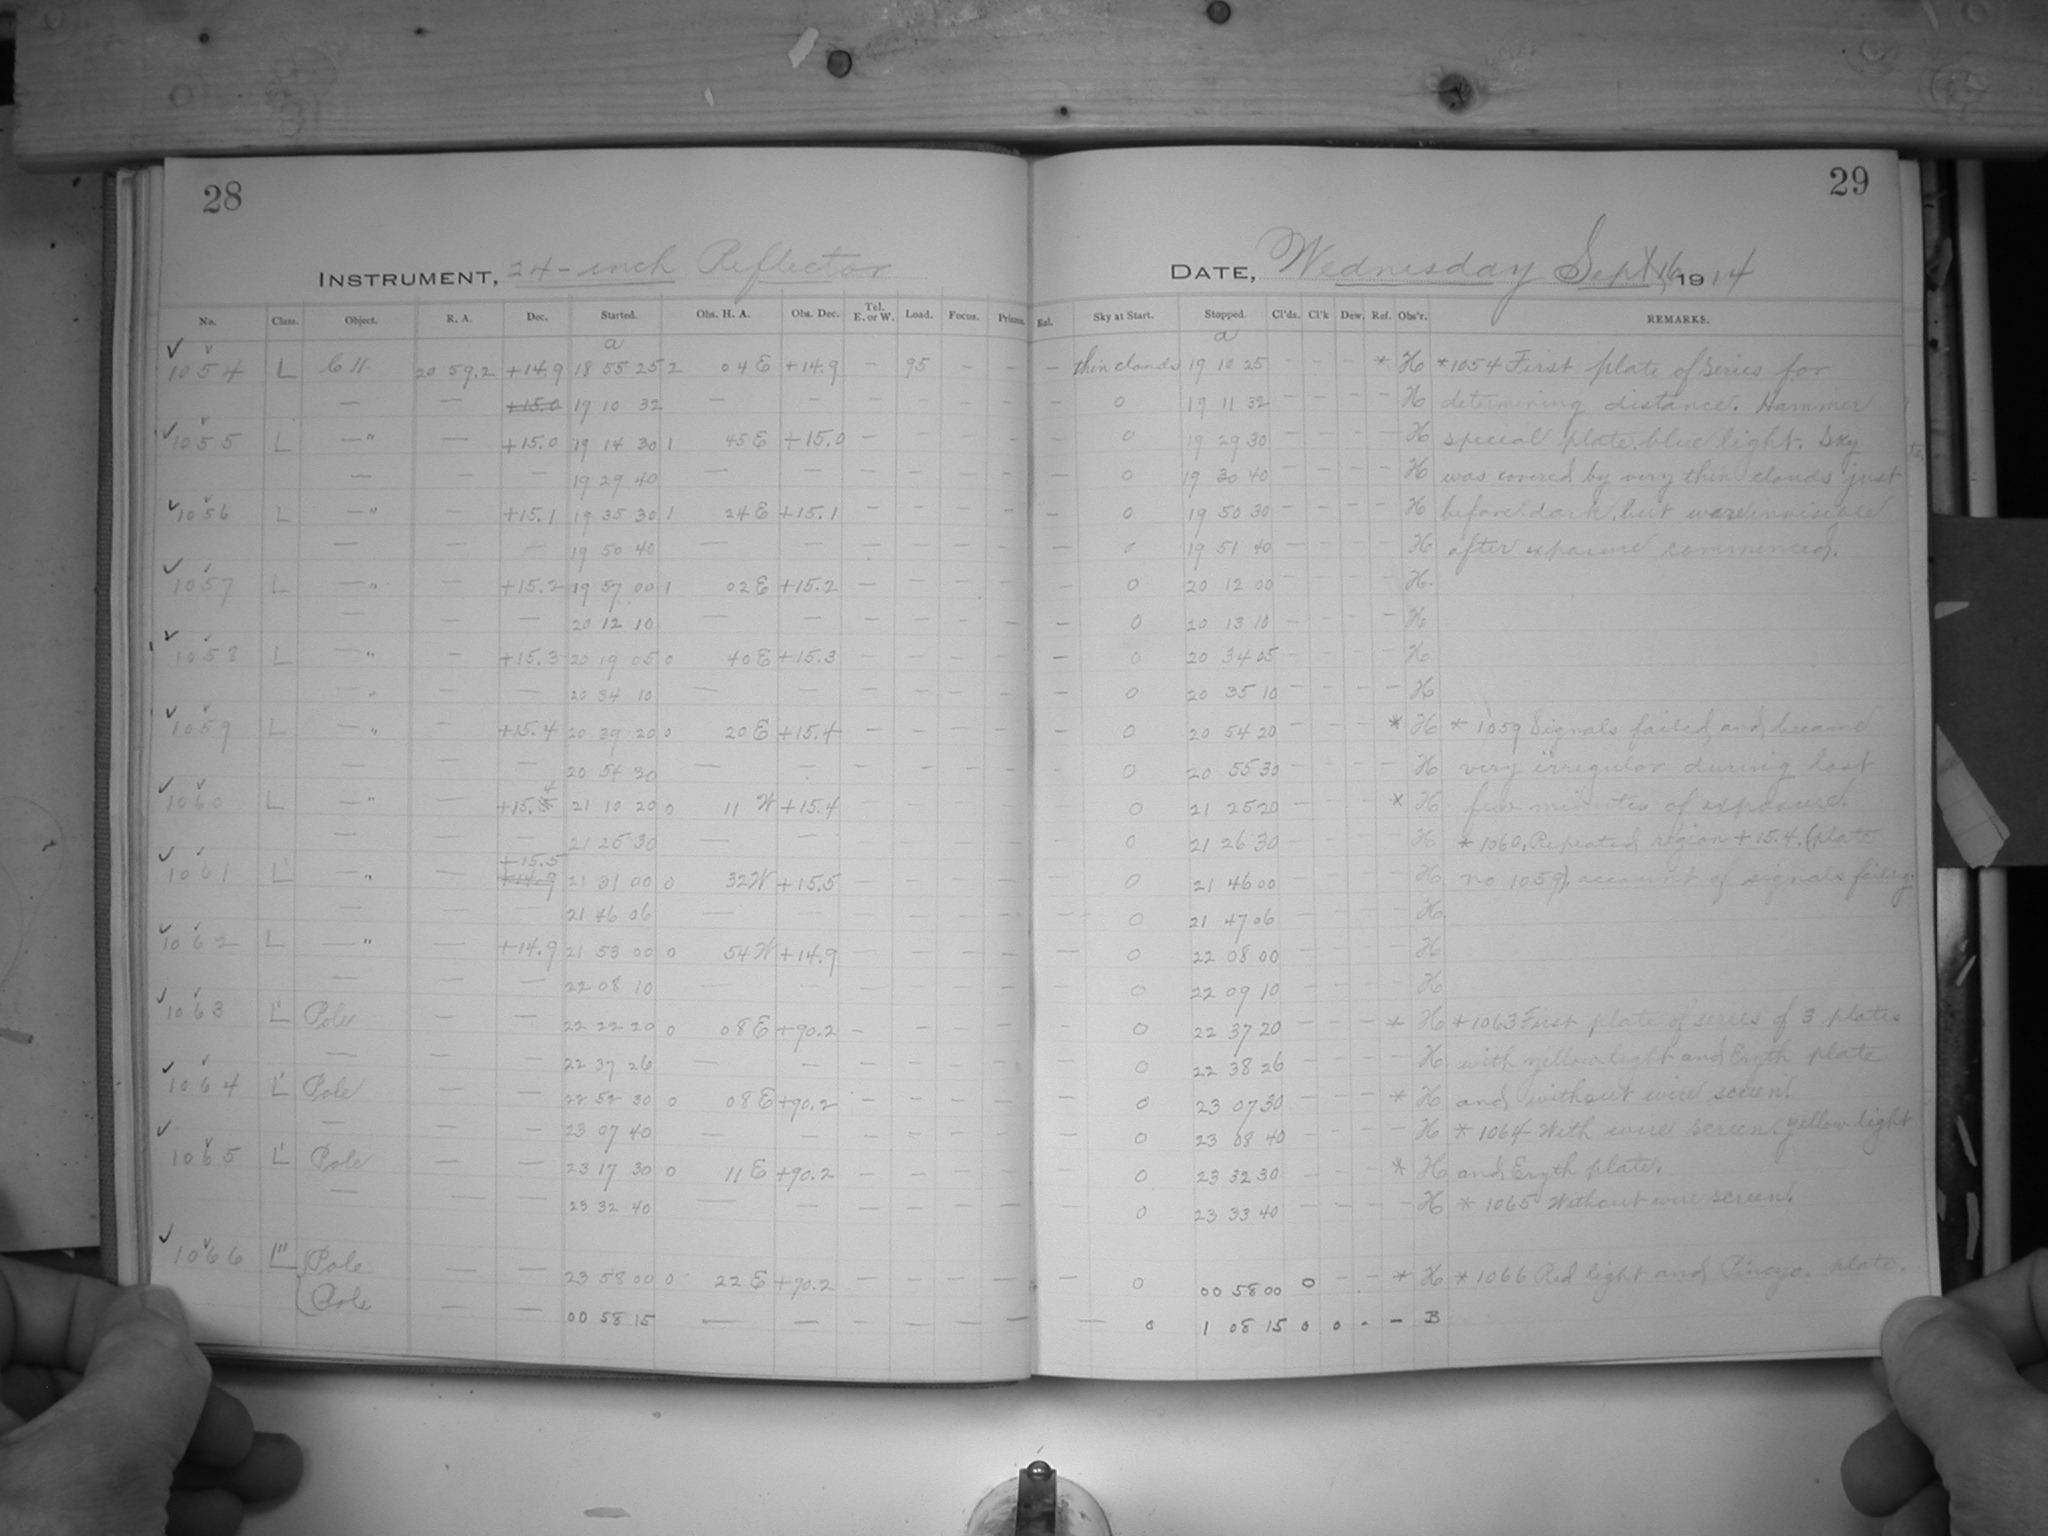 28
29
INSTRUMENT, 24-inch Reflector
DATE, Wednesday Sept 16, 1914
No. Class. Object. R. A. Dec. Started. Obs. H. A. Obs. Dec. Tel. E. or W. Load. Focus. Prisms. Eal. Sky at Start. Stopped. Cl'ds. Cl'k Dew. Ref. Obs'r. REMARKS.
a a
1054 L 20 59.2 +14.9 18 55 25 2 04 E +14.9 — 95 — — — thin clouds 19 10 25 — — — * H *1054 First plate of series for
— — +15.0 19 10 32 — — — — — — — 0 19 11 32 — — — — H determining distance. Hammer
1055 L —" — +15.0 19 14 30 1 45 E +15.0 — — — — — 0 19 29 30 — — — — H special plate, blue light. Sky
— — — 19 29 40 — — — — — — — 0 19 30 40 — — — — H was covered by very thin clouds just
1056 L —" — +15.1 19 35 30 1 24 E +15.1 — — — — — 0 19 50 30 — — — — H before dark, but were invisible
— — — 19 50 40 — — — — — — — 0 19 51 40 — — — — H after exposure commenced.
1057 L —" — +15.2 19 57 00 1 02 E +15.2 — — — — — 0 20 12 00 — — — — H.
— — — 20 12 10 — — — — — — — 0 20 13 10 — — — — H
1058 L —" — +15.3 20 19 05 0 40 E +15.3 — — — — — 0 20 34 05 — — — — H
—" — — 20 34 10 — — — — — — — 0 20 35 10 — — — — H
1059 L —" — +15.4 20 39 20 0 20 E +15.4 — — — — — 0 20 54 20 — — — * H * 1059 Signals failed and became
— — — 20 54 30 — — — — — — — 0 20 55 30 — — — — H very irregular during last
1060 L —" — +15.4 21 10 20 0 11 W +15.4 — — — — — 0 21 25 20 — — — * H few minutes of exposure.
— — — 21 25 30 — — — — — — — 0 21 26 30 — — — — H * 1060, Repeated region +15.4, (plate
+15.5
1061 L' —" — +14.9 21 31 00 0 32 W +15.5 — — — — — 0 21 46 00 — — — — H no 1059), account of signals failing.
— — — 21 46 06 — — — — — — — 0 21 47 06 — — — — H
1062 L —" — +14.9 21 53 00 0 54 W +14.9 — — — — — 0 22 08 00 — — — — H
— — — 22 08 10 — — — — — — — 0 22 09 10 — — — — H
1063 L' Pole — — 22 22 20 0 08 E +90.2 — — — — — 0 22 37 20 — — — * H *1063 First plate of series of 3 plates
— — — 22 37 26 — — — — — — — 0 22 38 26 — — — — H with yellow light and Eryth plate
1064 L' Pole — — 22 52 30 0 08 E +90.2 — — — — — 0 23 07 30 — — — * H and without wire screen.
— — — 23 07 40 — — — — — — — 0 23 08 40 — — — — H * 1064 With wire screen, yellow light
1065 L' Pole — — 23 17 30 0 11 E +90.2 — — — — — 0 23 32 30 — — — * H and Eryth plate.
— — — 23 32 40 — — — — — — — 0 23 33 40 — — — — H * 1065 Without wire screen.
1066 L" Pole — — 23 58 00 0 22 E +90.2 — — — — — 0 00 58 00 0 — — * H * 1066 Red light and plate.
Pole — — 00 58 15 — — — — — — — 0 1 08 15 0 0 - — B